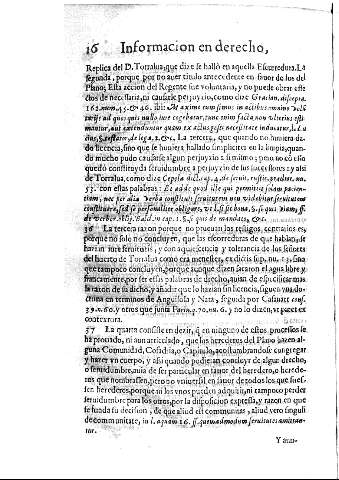 16 Informacion en derecho,
Replica del D. Torralua, que dize se halló en aquella Escorredura. La
segunda, porque por no auer titulo antecedente en fauor de los del
Plano; Esta accion del Regente fue voluntaria, y no puede obrar este
ctos de necessaria, ni causarle perjuyzio, como dize Gracian. discepta.
162. num. 45. & 46. ibi: Maxime cum simus in actibus
ad quos quis nullo iure cogebatur, tunc enim facta, non vlterius
, aut extenduntur quam ex
La tercera, que quando no huuiera da-
do licencia, sino que se huuiera hallado simpliciter en la limpia, quan-
do mucho pudo causarse algun perjuyzio a si mismo; peno no cõ esso
quedò constituyda seruidumbre a perjuyzio de los sucessores y assi
de Torralua, como dize Cepola dict. cap. 4. de seruit. rustic. prædior. nu.
53. con estas palabras: Et adde quod ille qui promittit
tiam, nec per alia verba constituit seruitutem non videbitur seruitutem
constituere, sed se personaliter obligare, vt l. si
de verbor. Bald. in cap. 1. §. si quis de mandato, &c.
36 La tercera razon porque no prueuan los testigos contrarios es,
porque no solo no concluyen, que las escorreduras de que hablan, se
hariã iure seruitutis, y con aquiescencia y tolerancia de los señores
del huerto de Torralua como era menester, ex dictis sup. nu. 13. sino
que tampoco concluyen, porque aunque dizen sacaron el agua libre y
francamente, por ser essas palabras de derecho, auian de especificar mas
la razon de su dicho, y añadir que lo harian sin licencia, segun vna do-
ctrina en terminos de Anguisola y Nata, seguida por Casanatt conf.
39. n. 60. y otros que junta Farin. q. 70. nu. 6. y no lo dizẽ, vt patet ex
contextum.
37 La quarta consiste en dezir, q̃ en ninguno de estos processos se
ha prouado, ni aun articulado, que los herederos del Plano hazen al-
guna Comunidad, Cofadria, o Capitulo, acostumbrandose congregar
y hazer en cuerpo, y assi quando pudieran concluyr de algun derecho,
o seruidumbre, auia de ser particular en fauor del heredero, o herede-
ros que nombrassen, pero no vniuersal en fauor de todos los que fues-
sen herederos, porque ni los vnos pueden adquirir, ni tampoco perder
seruidumbre para los otros, por la disposicion expressa, y razon en que
se funda su decision, de que aliud est communitas, aliud vero singuli
de communitate, in l. aquam 16. ff. quemadmodum seruitutes amittan-
tur.
Y aun-